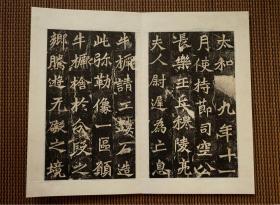 太和九年十一
月使持節司空公
長樂王丘穆陵亮
夫人尉遲為亡息
牛橛請工鏤石造
此弥勒像一區願
牛橛捨於分段之
鄉騰遊无礙之境